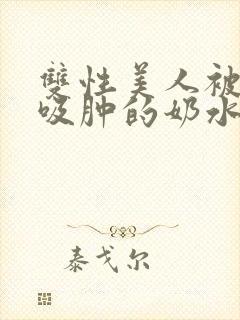 雙性美人被
吸肿的奶水
泰戈尔